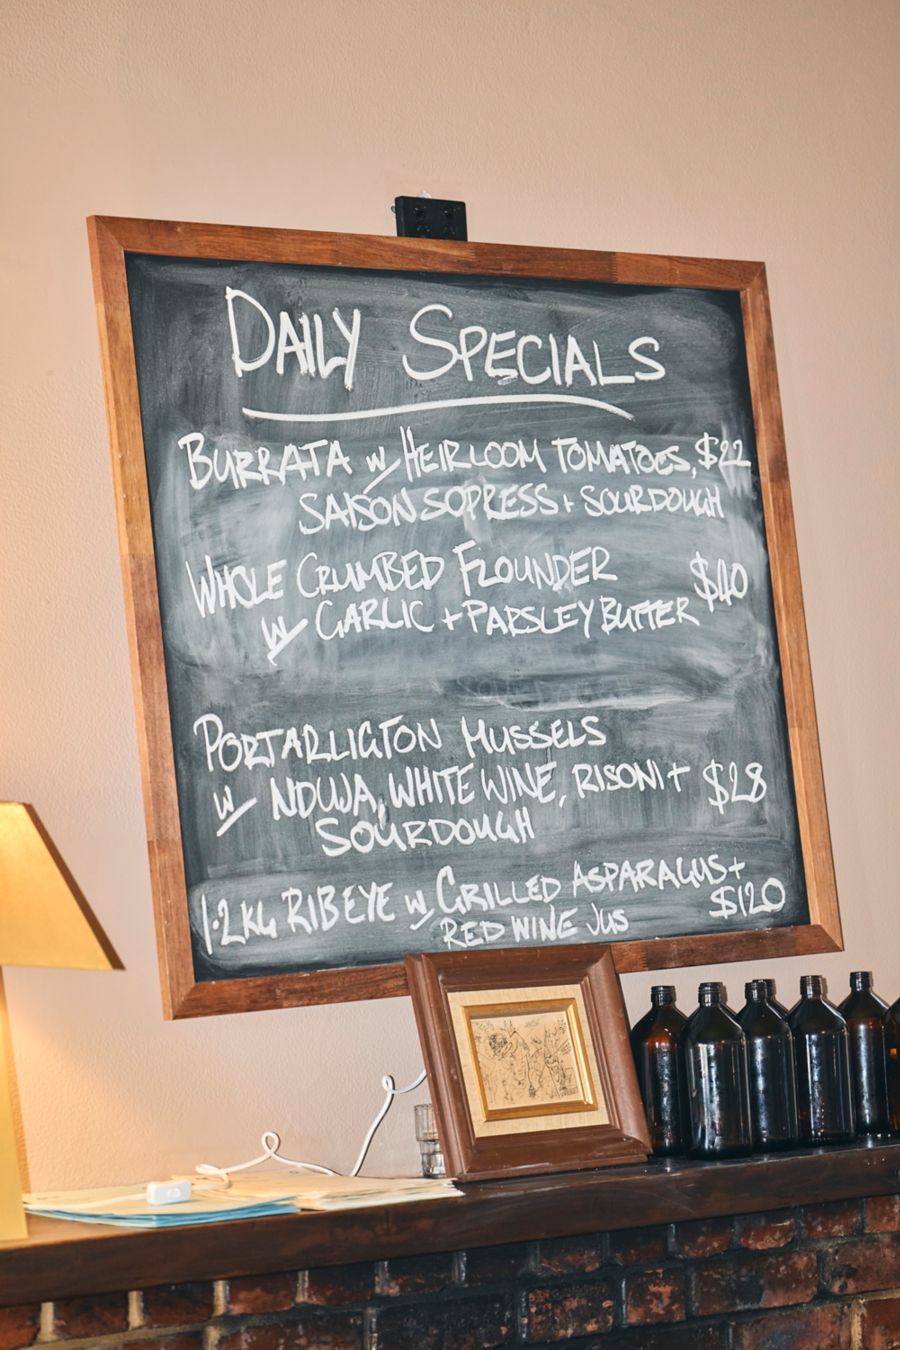 DAILY SPECIALS
BURRATA w/ HEIRLOOM TOMATOES, $22
SAISON SOPRESS + SOURDOUGH
WHOLE CRUMBED FLOUNDER $40
w/ GARLIC + PARSLEY BUTTER
PORTARLIGTON MUSSELS
w/ NDUJA, WHITE WINE, RISONI + $28
SOURDOUGH
1.2KG RIBEYE w/ GRILLED ASPARAGUS +
RED WINE JUS $120